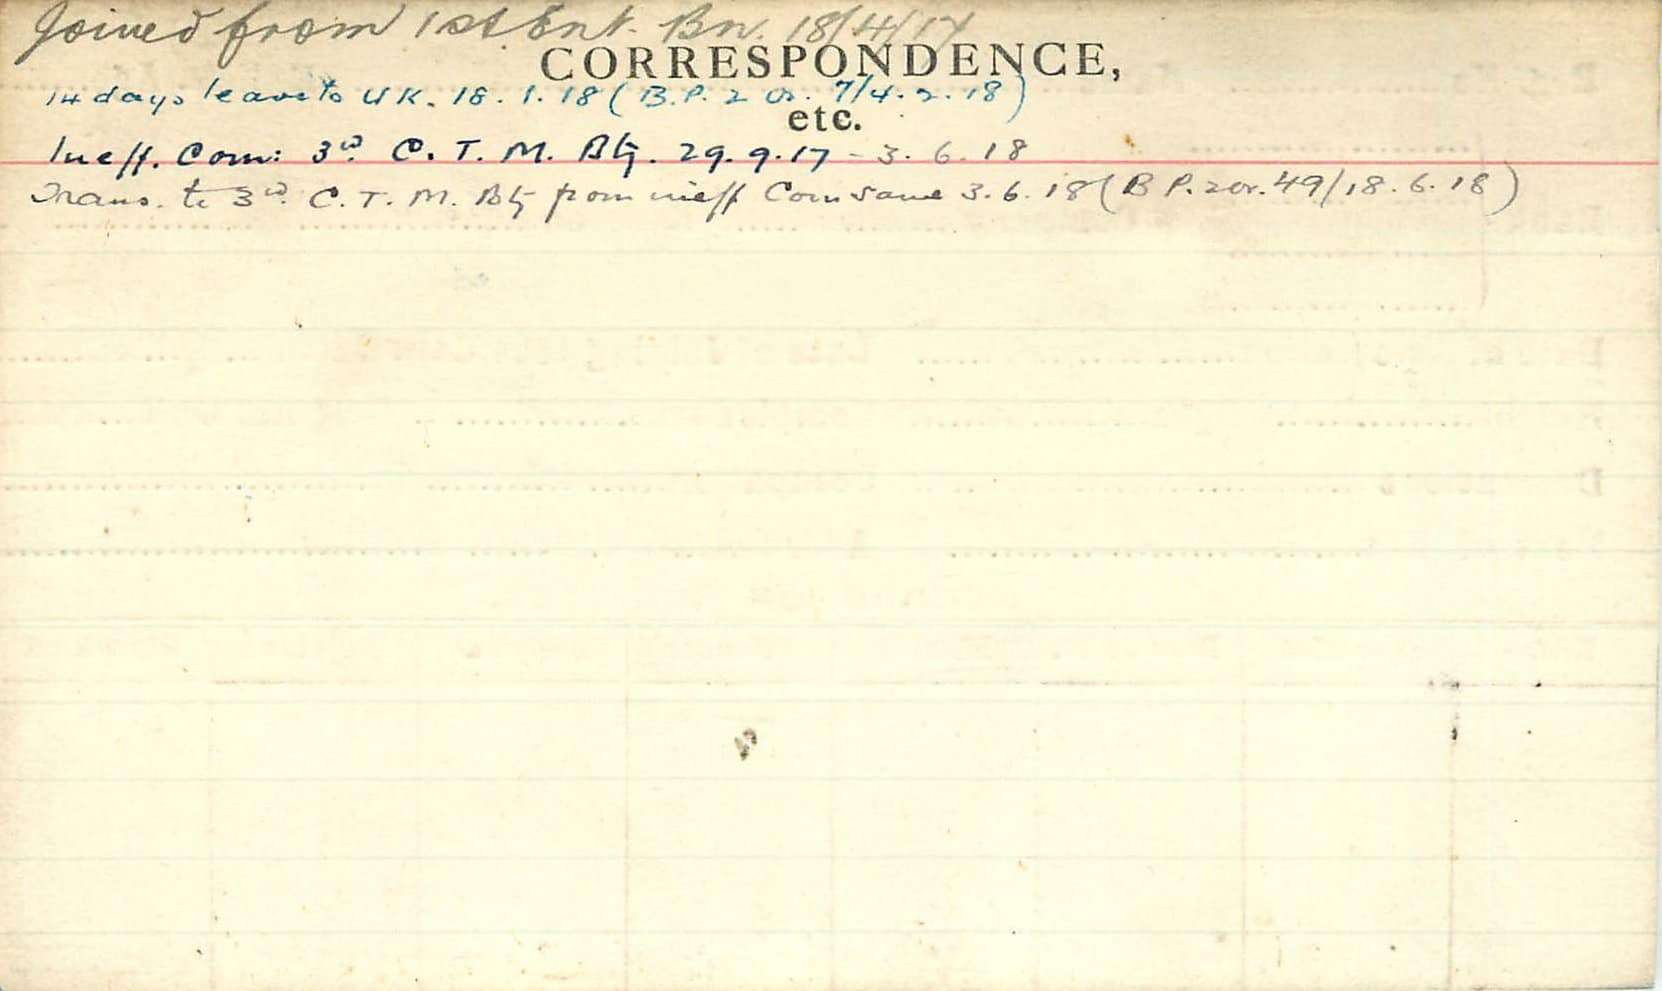 Joined from 1st Ent. Bn. 18/4/17
CORRESPONDENCE,
14 days leave to UK. 18.1.18 (B.P. 2 or. 7/4.2.18)
etc.
Ineff. Com: 3rd. C. T. M. Bty. 29.9.17 - 3.6.18
Trans. to 3rd. C. T. M. Bty from ineff Com same 3.6.18 (B P. 2 or. 49/18.6.18)